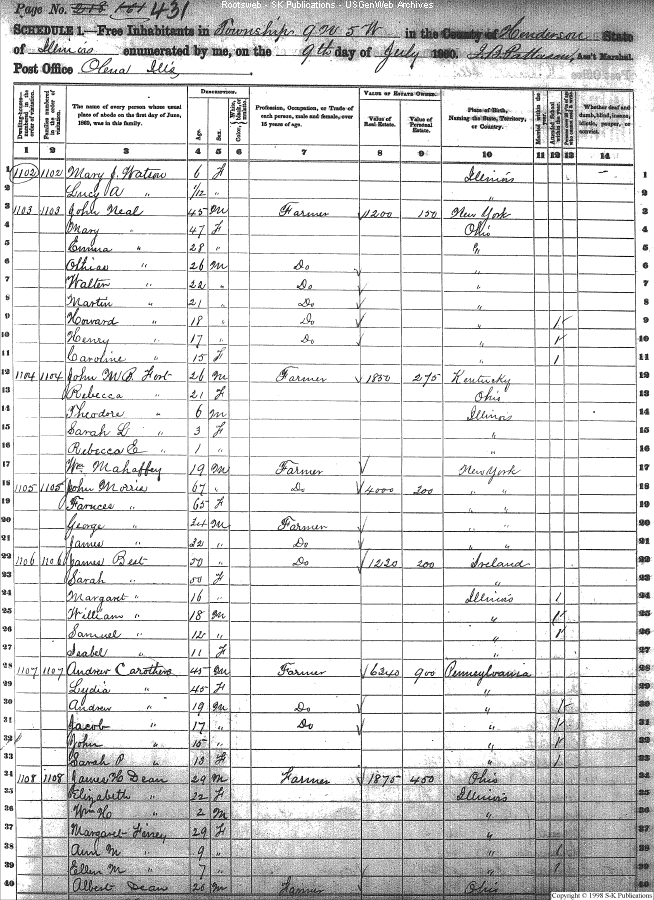 Rootsweb - SK Publications - USGenWeb Archives
Page No. 431
SCHEDULE 1.—Free Inhabitants in Township 9 N 5 W in the County of Henderson State
of Illinois enumerated by me, on the 9th day of July 1860. Ass't Marshal.
Post Office Olena Ills
Dwelling-houses numbered in the order of visitation.
Families numbered in the order of visitation.
The name of every person whose usual place of abode on the first day of June, 1860, was in this family.
DESCRIPTION.
Age.
Sex.
Color,
Profession, Occupation, or Trade of each person, male and female, over 15 years of age.
VALUE OF ESTATE OWNED.
Value of Real Estate.
Value of Personal Estate.
Place of Birth, Naming the State, Territory, or Country.
Married within the year.
Whether deaf and dumb, blind, insane, idiotic, pauper, or convict.
1 2 3 4 5 6 7 8 9 10 11 12 13 14
1 1102 1102 Mary J. Watson 6 F Illinois 1
2 Lucy A " 1/12 " " 2
3 1103 1103 John Neal 45 M Farmer 1200 150 New York 3
4 Mary " 47 F Ohio 4
5 Emma " 28 " " 5
6 " 26 M Do " 6
7 Walter " 22 " Do " 7
8 Martin " 21 " Do " 8
9 Howard " 18 " Do " 1 9
10 Henry " 17 " Do " 1 10
11 Caroline " 15 F " 1 11
12 1104 1104 John M B. Fort 26 M Farmer 1850 275 Kentucky 12
13 Rebecca " 21 F Ohio 13
14 Theodore " 6 M Illinois 14
15 Sarah L " 3 F " 15
16 Rebecca E " 1 " " 16
17 Wm Mahaffey 19 M Farmer New York 17
18 1105 1105 John Morris 67 " Do 4000 200 " " 18
19 " 65 F " " 19
20 George " 24 M Farmer " " 20
21 James " 22 " Do " " 21
22 1106 1106 James Best 50 " Do 200 Ireland 22
23 Sarah " 50 F " 23
24 Margaret " 16 " Illinois 1 24
25 William " 18 M " 1 25
26 Samuel " 12 " " 1 26
27 Isabel " 11 F " 27
28 1107 1107 Andrew Carothers 45 M Farmer 6340 900 Pennsylvania 28
29 Lydia " 45 F " 29
30 Andrew " 19 M Do " 1 30
31 Jacob " 17 " Do " 1 31
32 John " 15 " " 1 32
33 Sarah P " 13 F " 1 33
34 1108 1108 James H Dean 29 M Farmer 1875 450 Ohio 34
35 Elizabeth " 22 F Illinois 35
36 Wm H " 2 M " 36
37 Margaret 29 F " 37
38 Ann M " 9 " " 1 38
39 Ellen M " 7 " " 1 39
40 Albert Dean 20 M Farmer Ohio 40
Copyright © 1998 S-K Publications